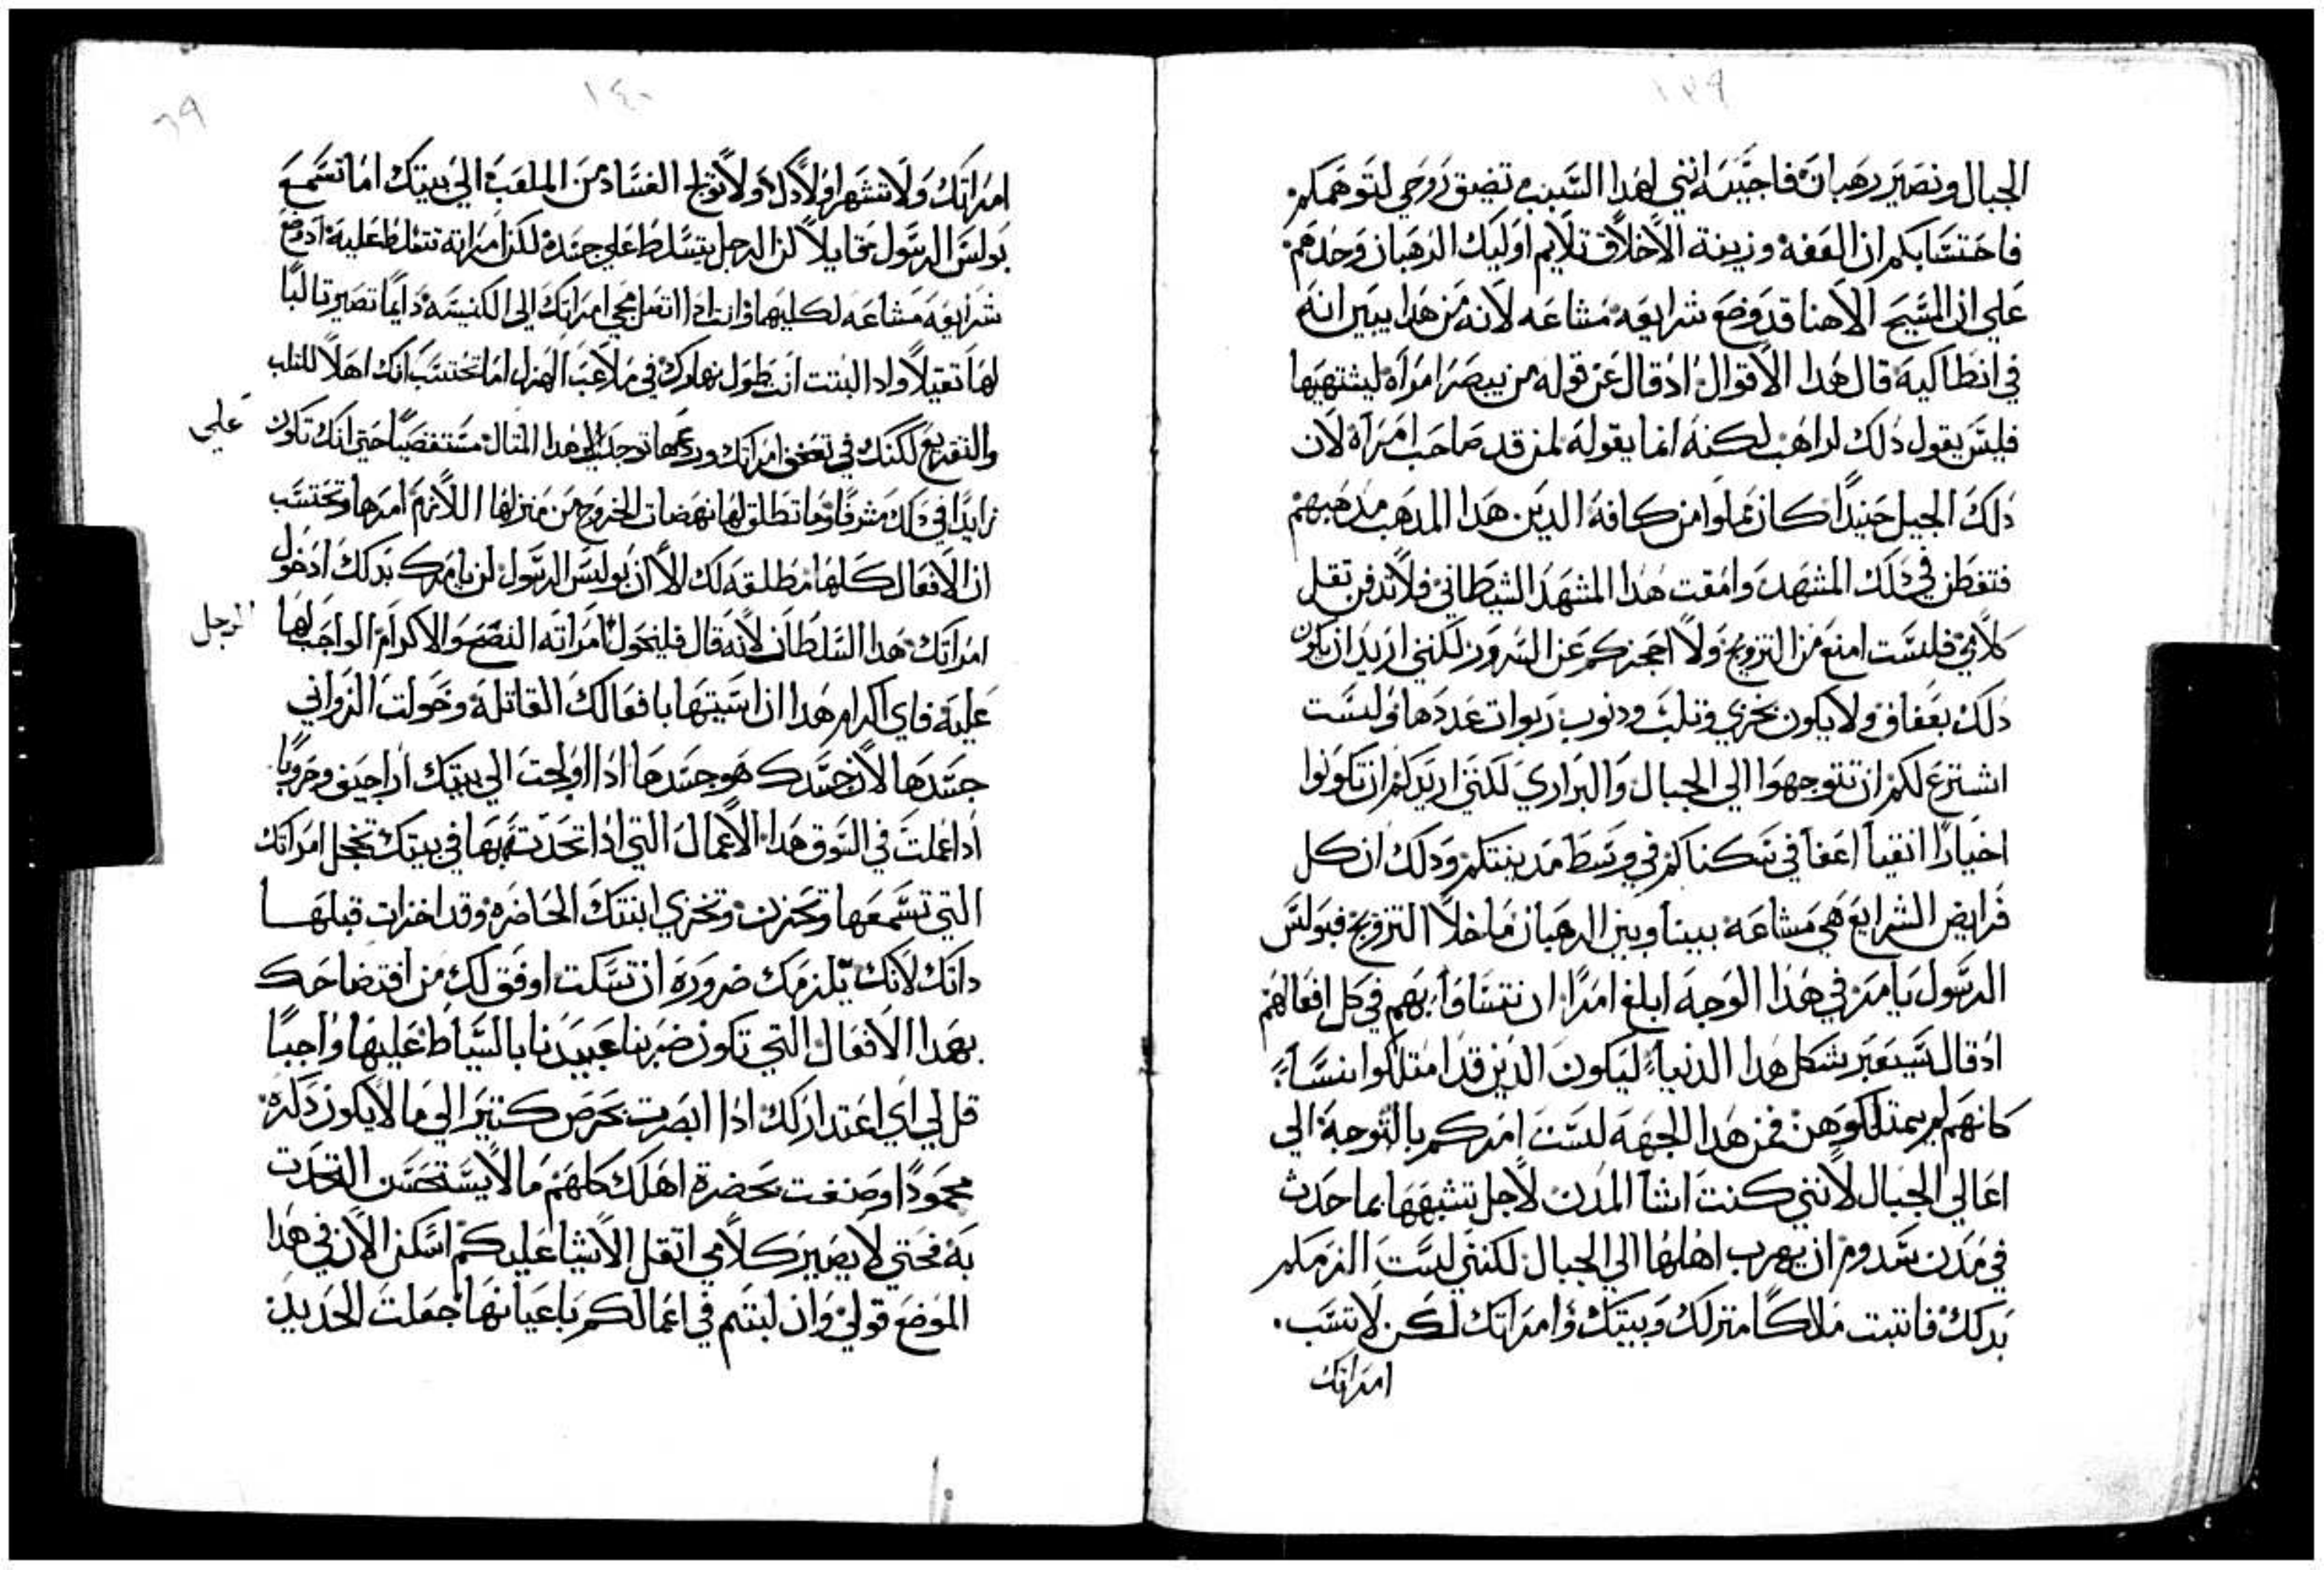 ١٣٩
الجبال ونصير رهبان فاجيبه انني لهذا السبب تضيق روحي لتوهمكم
فاحتسابكم ان العفه وزينة الاخلاق تلايم اوليك الرهبان وحدهم
علي ان المسيح الاهنا قد وضع شرايعه مشاعه لانه من هذا يبين انه
في انطاكيه قال هذا الاقوال اذ قال عن قوله من يبصر امراه ليشتهيها
فليس يقول ذلك لراهب لكنه انما يقوله لمن قد صاحب امراه لان
ذلك الجبل حنيدا كان مملوا من كافه الدين هدا المدهب مدهبهم
فتفطن في دلك المشهد وامقت هدا المشهد الشيطاني فلا تدفن تقل
كلامي فلست امنع من التزويج ولا احجزكم عن السرور لكنني اريد ان يكون
دلك بعفاف ولا يكون بخزي وتلب ودنوب ربوات عددها ولست
اشترع لكم ان تتوجهوا الي الجبال والبراري لكنني اريدكم ان تكونوا
اخيارا اتقيا اعفا في سكناكم في وسط مدينتكم ودلك ان كل
فرايض الشرايع هي مشاعه بيننا وبين الرهبان ما خلا التزويج فبولس
الرسول يامر في هذا الوجه ابلغ امرا ان نتساوا بهم في كل افعالهم
اذ قال سيعبر شكل هدا الدنيا ليكون الدين قد امتلكوا نسا
كانهم لم يمتلكوهن فمن هدا الجهه لست امركم بالتوجه الي
اعالي الجبال لانني كنت اشا المدن لاجل تشبهها بما حدث
في مدن سدوم ان يهرب اهلها الي الجبال لكنني لست الزمكم
بدلك فاتبت ملاكا منزلك وبيتك وامراتك لكن لا تسب
امراتك
١٤٠
٦٩
امراتك ولا تشهر اولادك ولا تولج الفساد من الملعب الي بيتك اما تسمع
بولس الرسول قايلا لن الرجل يتسلط علي جسده لكن امراته تتسلط عليه اد وضع
شرايعه مشاعه لكليهما وانت ادا اتفل مجي امراتك الي الكنيسه دايما تصير تالبا
لها تقيلا وادا لبتت انت طول نهارك في ملاعب الهزل اما تحتسب انك اهلا للتلب
والتقريع لكنك في تعفف امراتك وردعها توجد علي هدا المتال مستقصيا حتي انك تكون
علي
زايدا في دلك مشرفا وما تطلق لها نهضات الخروج من منزلها اللازم امرها وتحتسب
ان الافعال كلها مطلقه لك الا ان بوليس الرسول لن يامرك بدلك ادخول
امراتك هدا السلطان لانه قال فليخول امراته النصح والاكرام الواجب لها
الرجل
عليه فاي اكرام هدا ان اسيتها بافعالك القاتله وخولت الزواني
جسدها لان جسدك هو جسدها ادا اولجت الي بيتك اراجيف وحروبا
ادا عملت في السوق هدا الاعمال التي ادا تحدتت بها في بيتك تخجل امراتك
التي تسمعها وتحزن وتخزي ابنتك الحاضره وقد اخزيت قبلها
داتك لانك يلزمك ضروره ان تسكت اوفق لك من افتضاحك
بهدا الافعال التي تكون ضربنا عبيدنا بالسياط عليها واجبا
قل لي اي اعتدار لك ادا ابصرت بحرص كتير الي ما لا يكون دكره
محمودا وصنعت بحضرة اهلك كلهم ما لا يستحسن التحدت
به فحتي لا يصير كلامي اتقل الاشيا عليكم اسكن الان في هدا
الموضع قولي وان لبتتم في اعمالكم باعيانها جعلت الحديد